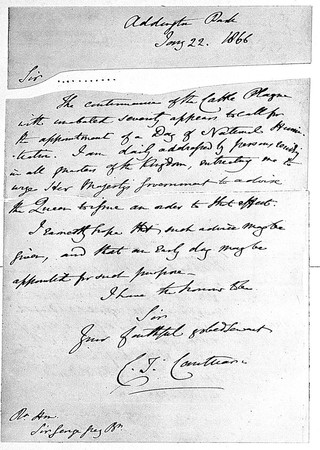 Addington Park
Jany 22. 1866
Sir ...........
The continuance of the Cattle Plague
with unabated severity appears to call for
the appointment of a Day of National Humi-
liation. I am daily addressed by persons residing
in all quarters of the Kingdom, entreating me to
urge Her Majesty's Government to advise
the Queen to issue an order to that effect.
I earnestly hope that such advice may be
given, and that an early day may be
appointed for such purpose—
I have the honour to be
Sir
Your faithful & obedt servant
C. T. Cantuar.
Rt Hon
Sir George Grey Bt.